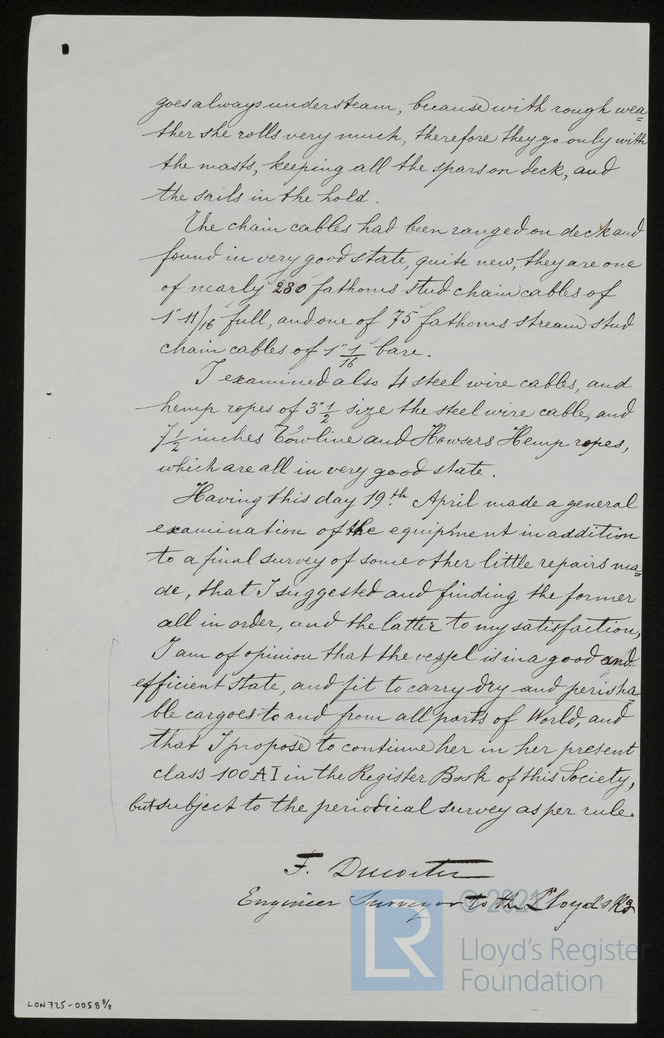 goes always under steam, because with rough wea=
ther she rolls very much, therefore they go only with
the masts, keeping all the spars on deck, and
the sails in the hold.
The chain cables had been ranged on deck and
found in very good state, quite new, they are one
of nearly 280 fathoms stud chain cables of
1" 11/16 full, and one of 75 fathoms stream stud
chain cables of 1" 1/16 bare.
I examined also 4 steel wire cables, and
hemp ropes of 3" 1/2 size the steel wire cable, and
7 1/2 inches Towline and Howsers Hemp ropes,
which are all in very good state.
Having this day 19.th April made a general
examination of the equipment in addition
to a final survey of some other little repairs ma=
de, that I suggested and finding the former
all in order, and the latter to my satisfaction,
I am of opinion that the vessel is in a good and
efficient state, and fit to carry dry and perisha=
ble cargoes to and from all parts of World, and
that I propose to continue her in her present
class 100 A I in the Register Book of this Society,
but subject to the periodical survey as per rule.
F.
Engineer Surveyor to the Lloyd's Rg
© 2021
LR
Lloyd's Register
Foundation
LON725-0058 8/8